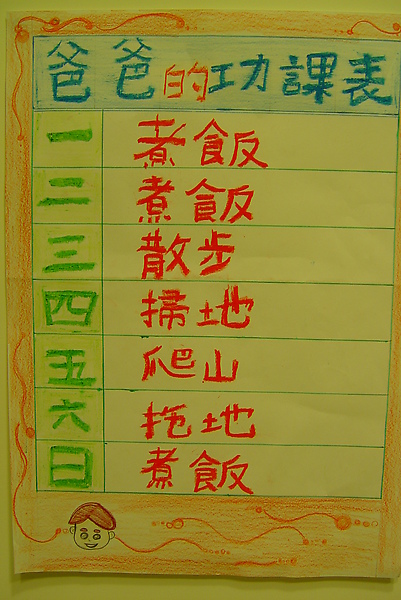 爸爸的功課表
一 煮飯
二 煮飯
三 散步
四 掃地
五 爬山
六 拖地
日 煮飯